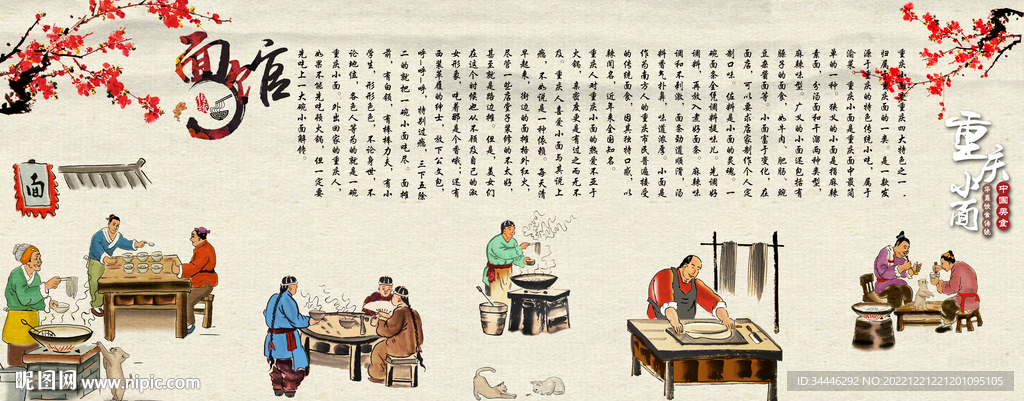 重庆小面
中国美食
华夏饮食传统
重庆小面是重庆四大特色之一，
归属于重庆面的一类，是一款发
源于重庆的特色传统小吃，属于
渝菜。重庆小面是重庆面中最简
单的一种，狭义的小面是指麻辣
素面，分汤面和干溜两种类型，
麻辣味型。广义的小面还包括有
臊子的面食，如牛肉、肥肠、豌
豆杂酱面等。小面富于变化，在
面店，可以要求店家制作个人定
制口味。佐料是小面的灵魂。一
碗面条全凭调料提味儿。先调好
调料，再放入煮好面条。麻辣味
调和不刺激，面条劲道顺滑，汤
料香气扑鼻，味道浓厚。小面是
作为南方人的重庆市民普遍接受
的传统面食，因其独特口感，以
麻闻名，近年来全国知名。
重庆人对重庆小面的热爱不亚于
火锅，亲密度更是有过之而无不
及。重庆人喜爱小面与其说上
瘾，不如说是一种依赖。每天清
早起来，街边的面摊格外红火，
尽管一些店堂子装修的不太好，
甚至就是路边摊。但是，美女们
在这个时候也从不顾及自己的淑
女形象，吃着那是个香哦；还有
西装革履的绅士，放下公文包，
呼-呼-呼，特别过瘾，三下五除
二的就把一碗小面吃尽。面摊
前，有白领、有棒棒力夫、有小
学生，形形色色，不论身世、不
论地位，各色人等为的就是一碗
重庆小面。外出回家的重庆人，
如果不能先吃顿火锅，但一定要
先吃上一大碗小面解馋。
面官
面
昵图网 www.nipic.com
ID:34446292 NO:20221221221201095105